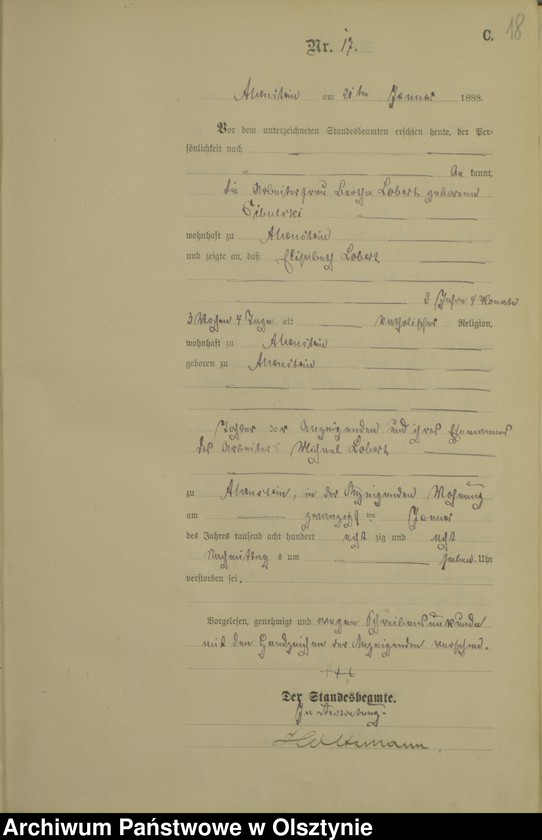 C. 18
Nr. 17.
Allenstein am 21ten Januar 1888.
Vor dem unterzeichneten Standesbeamten erschien heute, der Per-
sönlichkeit nach
kannt,
die Arbeiterfrau Bertha Lobert geborene
wohnhaft zu Allenstein
und zeigte an, daß Elisabeth Lobert
3 Jahre 4 Monate
3 Wochen 4 Tage alt katholischer Religion,
wohnhaft zu Allenstein
geboren zu Allenstein
Tochter der Anzeigenden und ihres Ehemannes
des Arbeiters Michael Lobert
zu Allenstein, in der Anzeigenden Wohnung
am zwanzigsten Januar
des Jahres tausend acht hundert acht zig und acht
Nachmittag s um sieben Uhr
verstorben sei.
Vorgelesen, genehmigt und wegen Schreibensunkunde
mit den Handzeichen der Anzeigenden versehen.
+++
Der Standesbeamte.
In Vertretung.
Archiwum Państwowe w Olsztynie